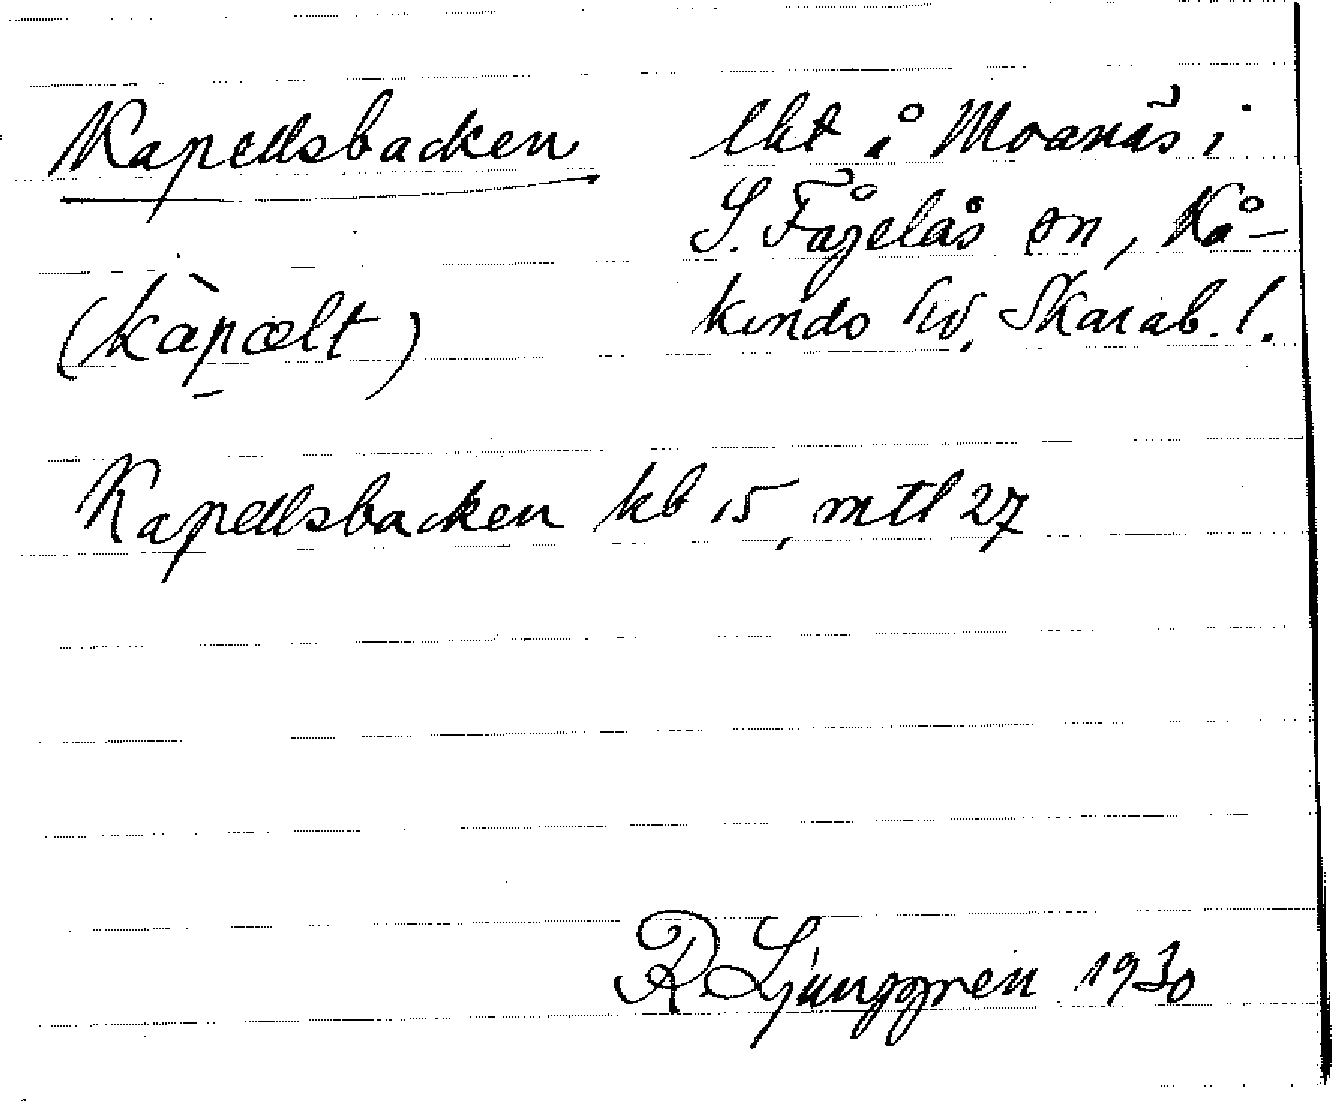 Kapellsbacken lht å Moanäs i
S. Fågelås sn, Kå-
kinds hd, Skarab. l.
(kapælt)
Kapellsbacken kb 15, mtl 27
R. Ljunggren 1930